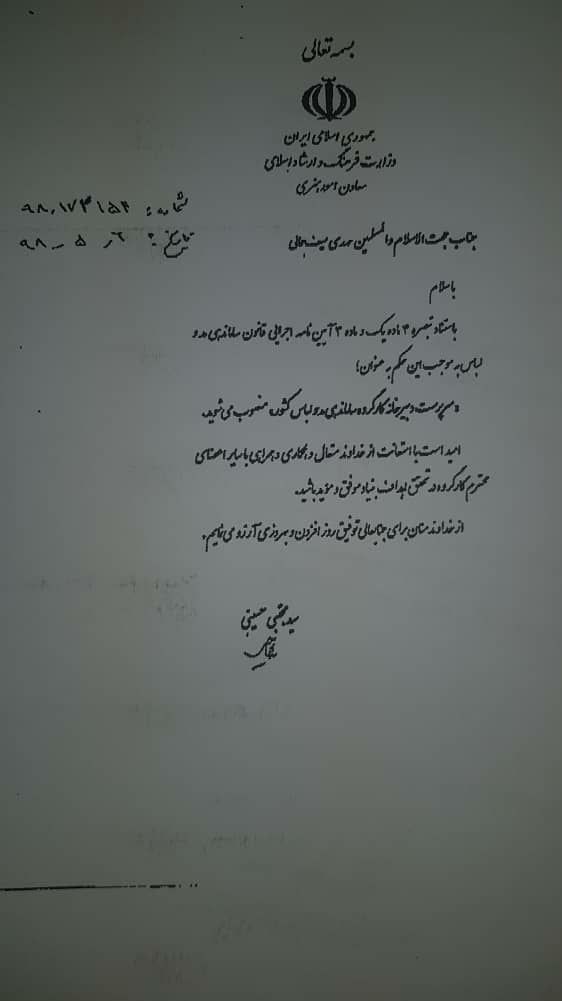 بسمه تعالی
جمهوری اسلامی ایران
وزارت فرهنگ و ارشاد اسلامی
معاون امور هنری
شماره: ۹۸،۱۷۳۱۵۴
تاریخ: ۹۸ - ۵ -
جناب حجت الاسلام والمسلمین مهدی سیف جمالی
باسلام
باستناد تبصره ۳ ماده یک و ماده ۳ آیین نامه اجرایی قانون ساماندهی مد و
لباس به موجب این حکم به عنوان؛
«سرپرست دبیرخانه کارگروه ساماندهی مد و لباس کشور» منصوب می شوید.
امید است با استعانت از خداوند متعال و همکاری و همراهی با سایر اعضای
محترم کارگروه در تحقق اهداف بنیاد موفق و مؤید باشید.
از خداوند منان برای جنابعالی توفیق روز افزون و بهروزی آرزو می نمایم.
سید مجتبی حسینی